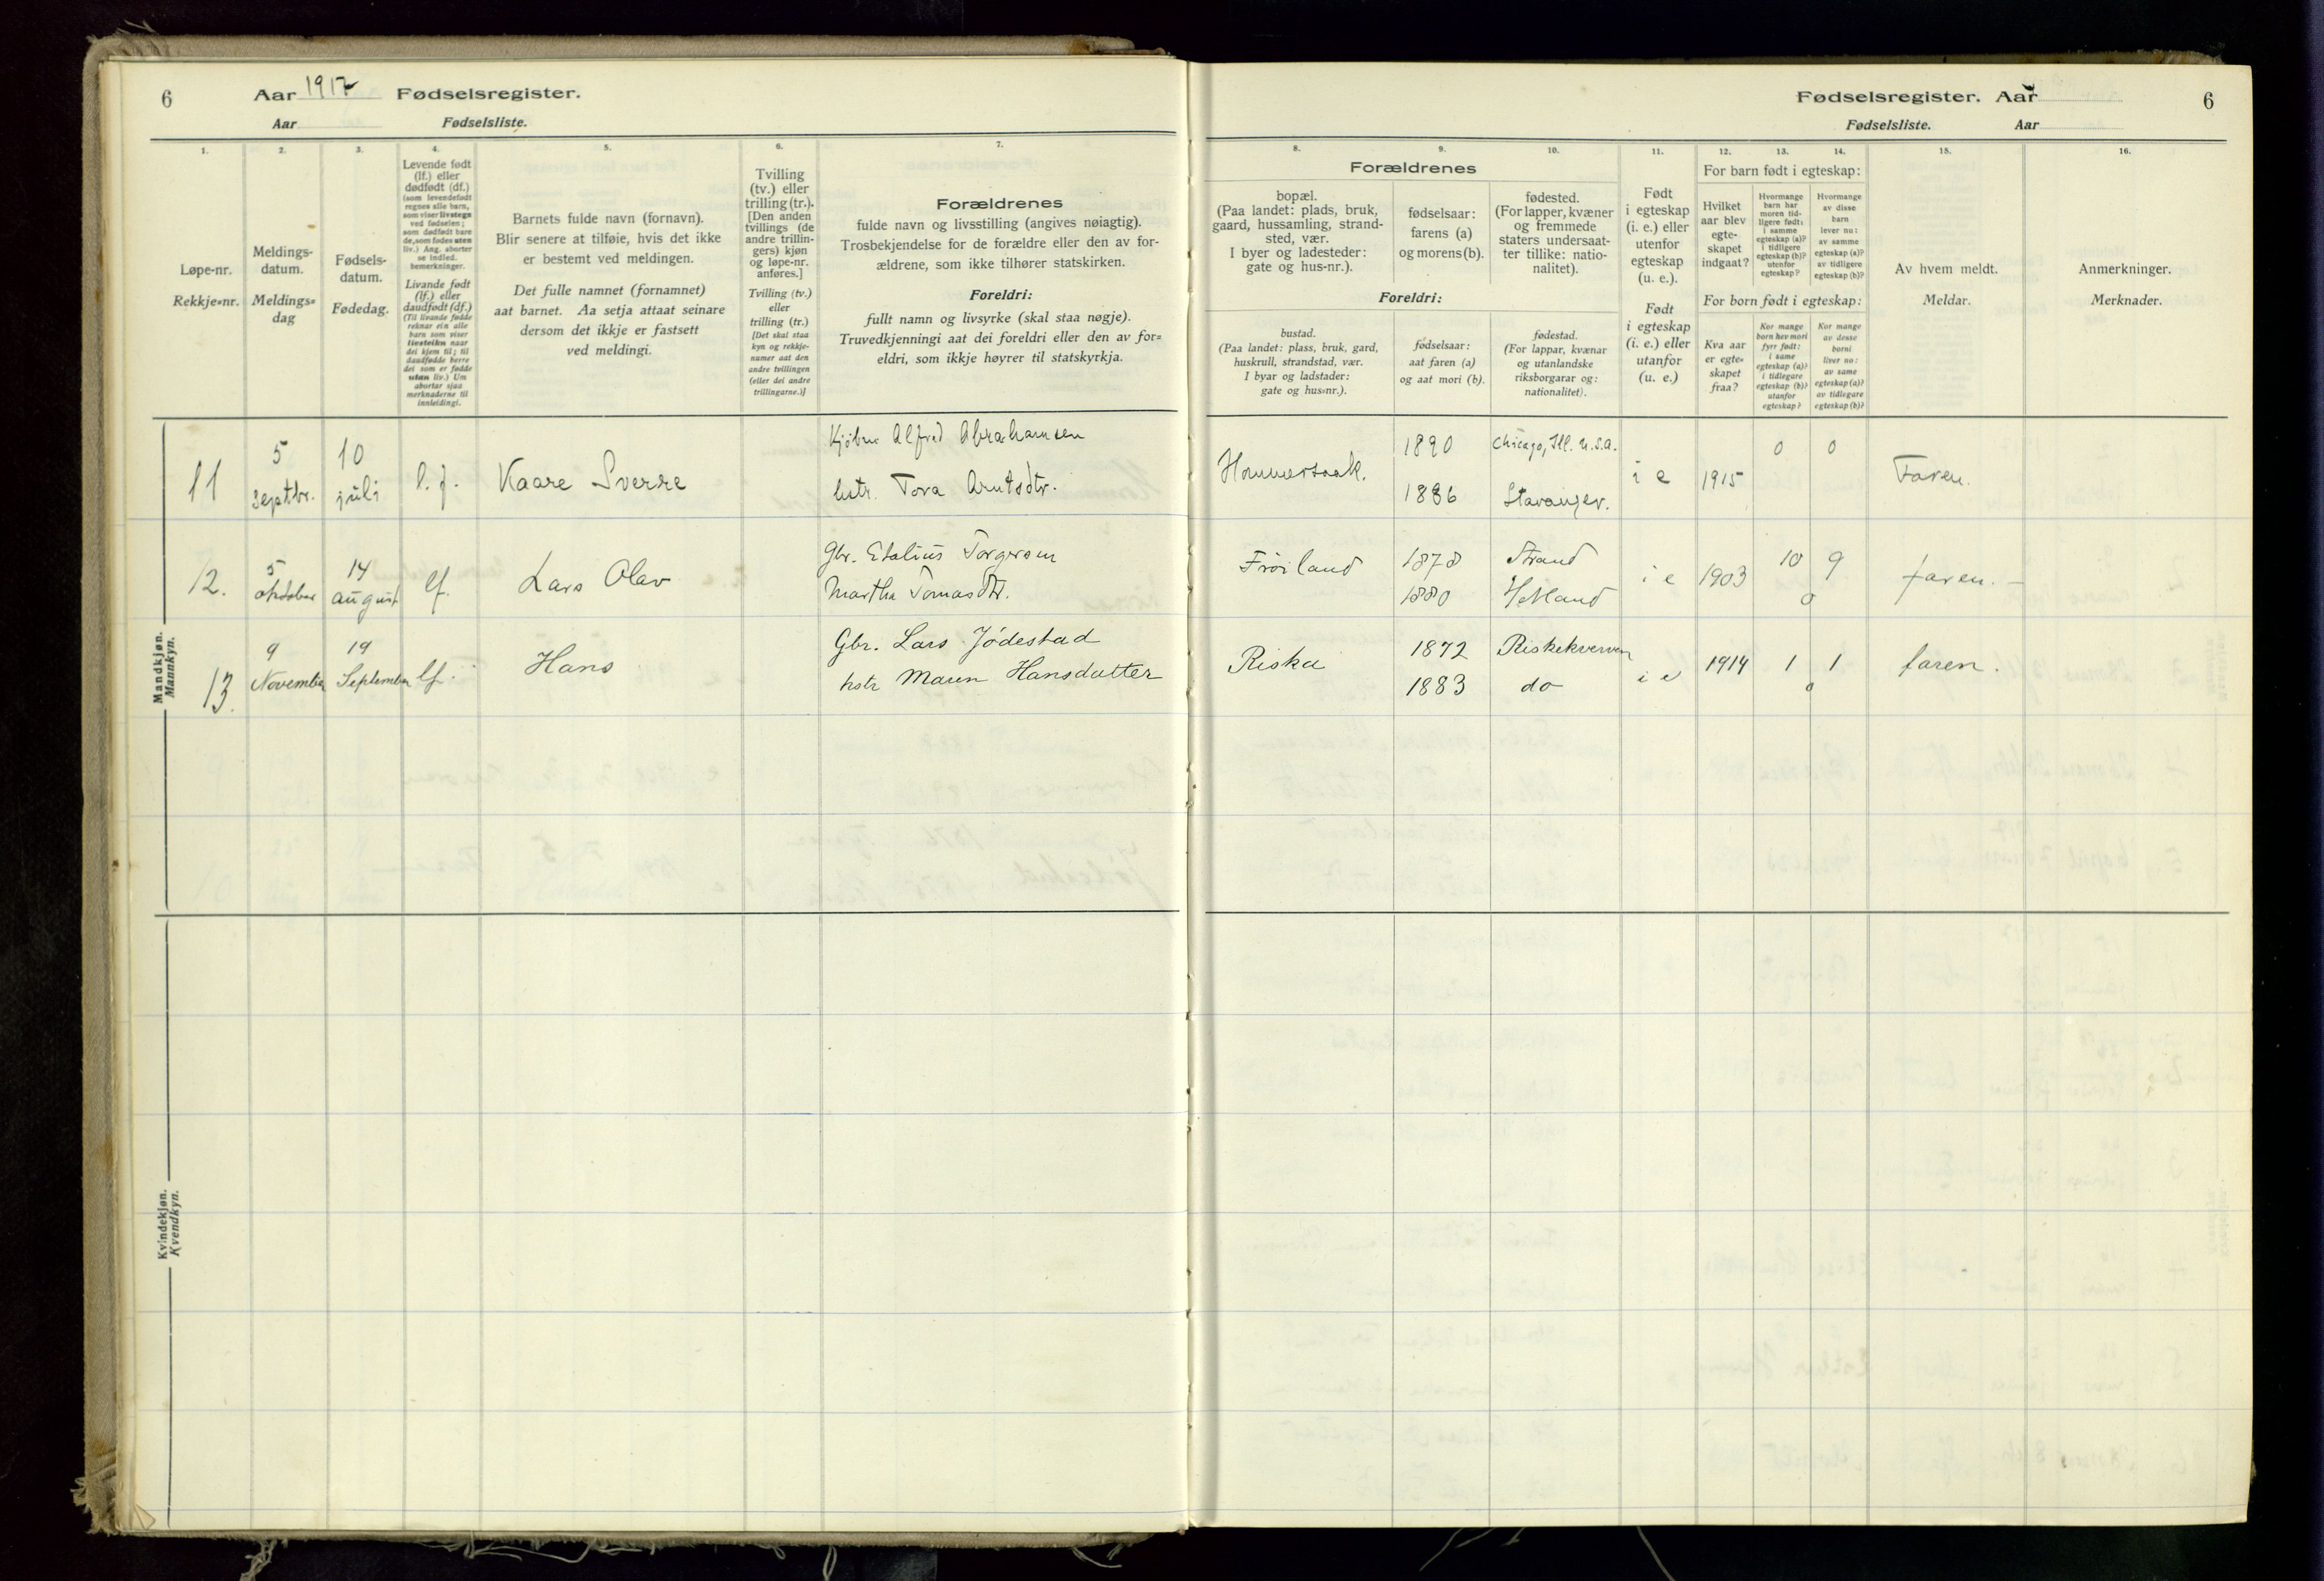 6
Aar 1917 Fødselsregister.
Aar Fødselsliste.
1.
2.
3.
4.
5.
6.
7.
Løpe-nr.
Rekkje=nr.
Meldings-
datum.
Meldings=
dag
Fødsels-
datum.
Fødedag.
Levende født
(lf.) eller
dødfødt (df.)
(som levendefødt
regnes alle barn,
som viser livstegn
ved fødselen;
som dødfødt bare
de, som fødes uten
liv.) Ang. aborter
se indled.
bemerkninger.
Livande født
(lf.) eller
daudfødt (df.)
(Til livande fødde
reknar ein alle
barn som viser
livsteikn naar
dei kjem til; til
daudfødde berre
dei som er fødde
utan liv.) Um
abortar sjaa
merknaderne til
innleidingi.
Barnets fulde navn (fornavn).
Blir senere at tilføie, hvis det ikke
er bestemt ved meldingen.
Det fulle namnet (fornamnet)
aat barnet. Aa setja attaat seinare
dersom det ikkje er fastsett
ved meldingi.
Tvilling
(tv.) eller
trilling (tr.).
[Den anden
tvillings (de
andre trillin-
gers) kjøn
og løpe-nr.
anføres.]
Tvilling (tv.)
eller
trilling (tr.)
[Det skal staa
kyn og rekkje-
numer aat den
andre tvillingen
(eller dei andre
trillingarne.)]
Forældrenes
fulde navn og livsstilling (angives nøiagtig).
Trosbekjendelse for de forældre eller den av for-
ældrene, som ikke tilhører statskirken.
Foreldri:
fullt namn og livsyrke (skal staa nøgje).
Truvedkjenningi aat dei foreldri eller den av for=
eldri, som ikkje høyrer til statskyrkja.
Mandkjøn.
Mannkyn.
11
5
septbr.
10
juli
l.f.
Kaare Sverre
Kjøbm. Alfred Abrahamsen
hstr. Tora Arntsdtr.
12.
5
oktober
14
august
lf.
Lars Olav
Gbr. Etalius Torgersen
Martha Tomasdtr.
13.
9
November
19
September
lf.
Hans
Gbr. Lars Jödestad
hstr Maren Hansdatter
Kvindekjøn.
Kvendkyn.
Fødselsregister. Aar
6
Fødselsliste. Aar
8.
9.
10.
11.
12.
13.
14.
15.
16.
Forældrenes
bopæl.
(Paa landet: plads, bruk,
gaard, hussamling, strand-
sted, vær.
I byer og ladesteder:
gate og hus-nr.).
fødselsaar:
farens (a)
og morens (b).
fødested.
(For lapper, kvæner
og fremmede
staters undersaat-
ter tillike: natio-
nalitet).
Foreldri:
bustad.
(Paa landet: plass, bruk, gard,
huskrull, strandstad, vær.
I byar og ladstader:
gate og hus=nr.).
fødselsaar:
aat faren (a)
og aat mori (b).
fødestad.
(For lappar, kvænar
og utanlandske
riksborgarar og:
nationalitet).
Født
i egteskap
(i. e.) eller
utenfor
egteskap
(u. e.).
Født
i egteskap
(i. e.) eller
utanfor
(u. e.)
For barn født i egteskap:
Hvilket
aar blev
egte-
skapet
indgaat?
Hvormange
barn har
moren tid-
ligere født:
i samme
egteskap (a)?
i tidligere
egteskap (b)?
utenfor
egteskap?
Hvormange
av disse
barn
lever nu:
av samme
egteskap (a)?
av tidligere
egteskap (b)?
For born født i egteskap:
Kva aar
er egte=
skapet
fraa?
Kor mange
born hev mori
fyrr født:
i same
egteskap (a)?
i tidlegare
egteskap (b)?
utanfor
egteskap?
Kor mange
av desse
borni
liver no:
av same
egteskap (a)?
av tidlegare
egteskap (b)?
Av hvem meldt.
Meldar.
Anmerkninger.
Merknader.
Hommersaak.
1890
Chicago, Ill. U.S.A.
1886
Stavanger.
i e
1915
0
0
Faren.
Fröiland
1878
Strand
1880
Hetland
i e
1903
10
9
0
faren.
Riska
1872
Riskekverven
1883
do
i e
1914
1
1
0
faren.